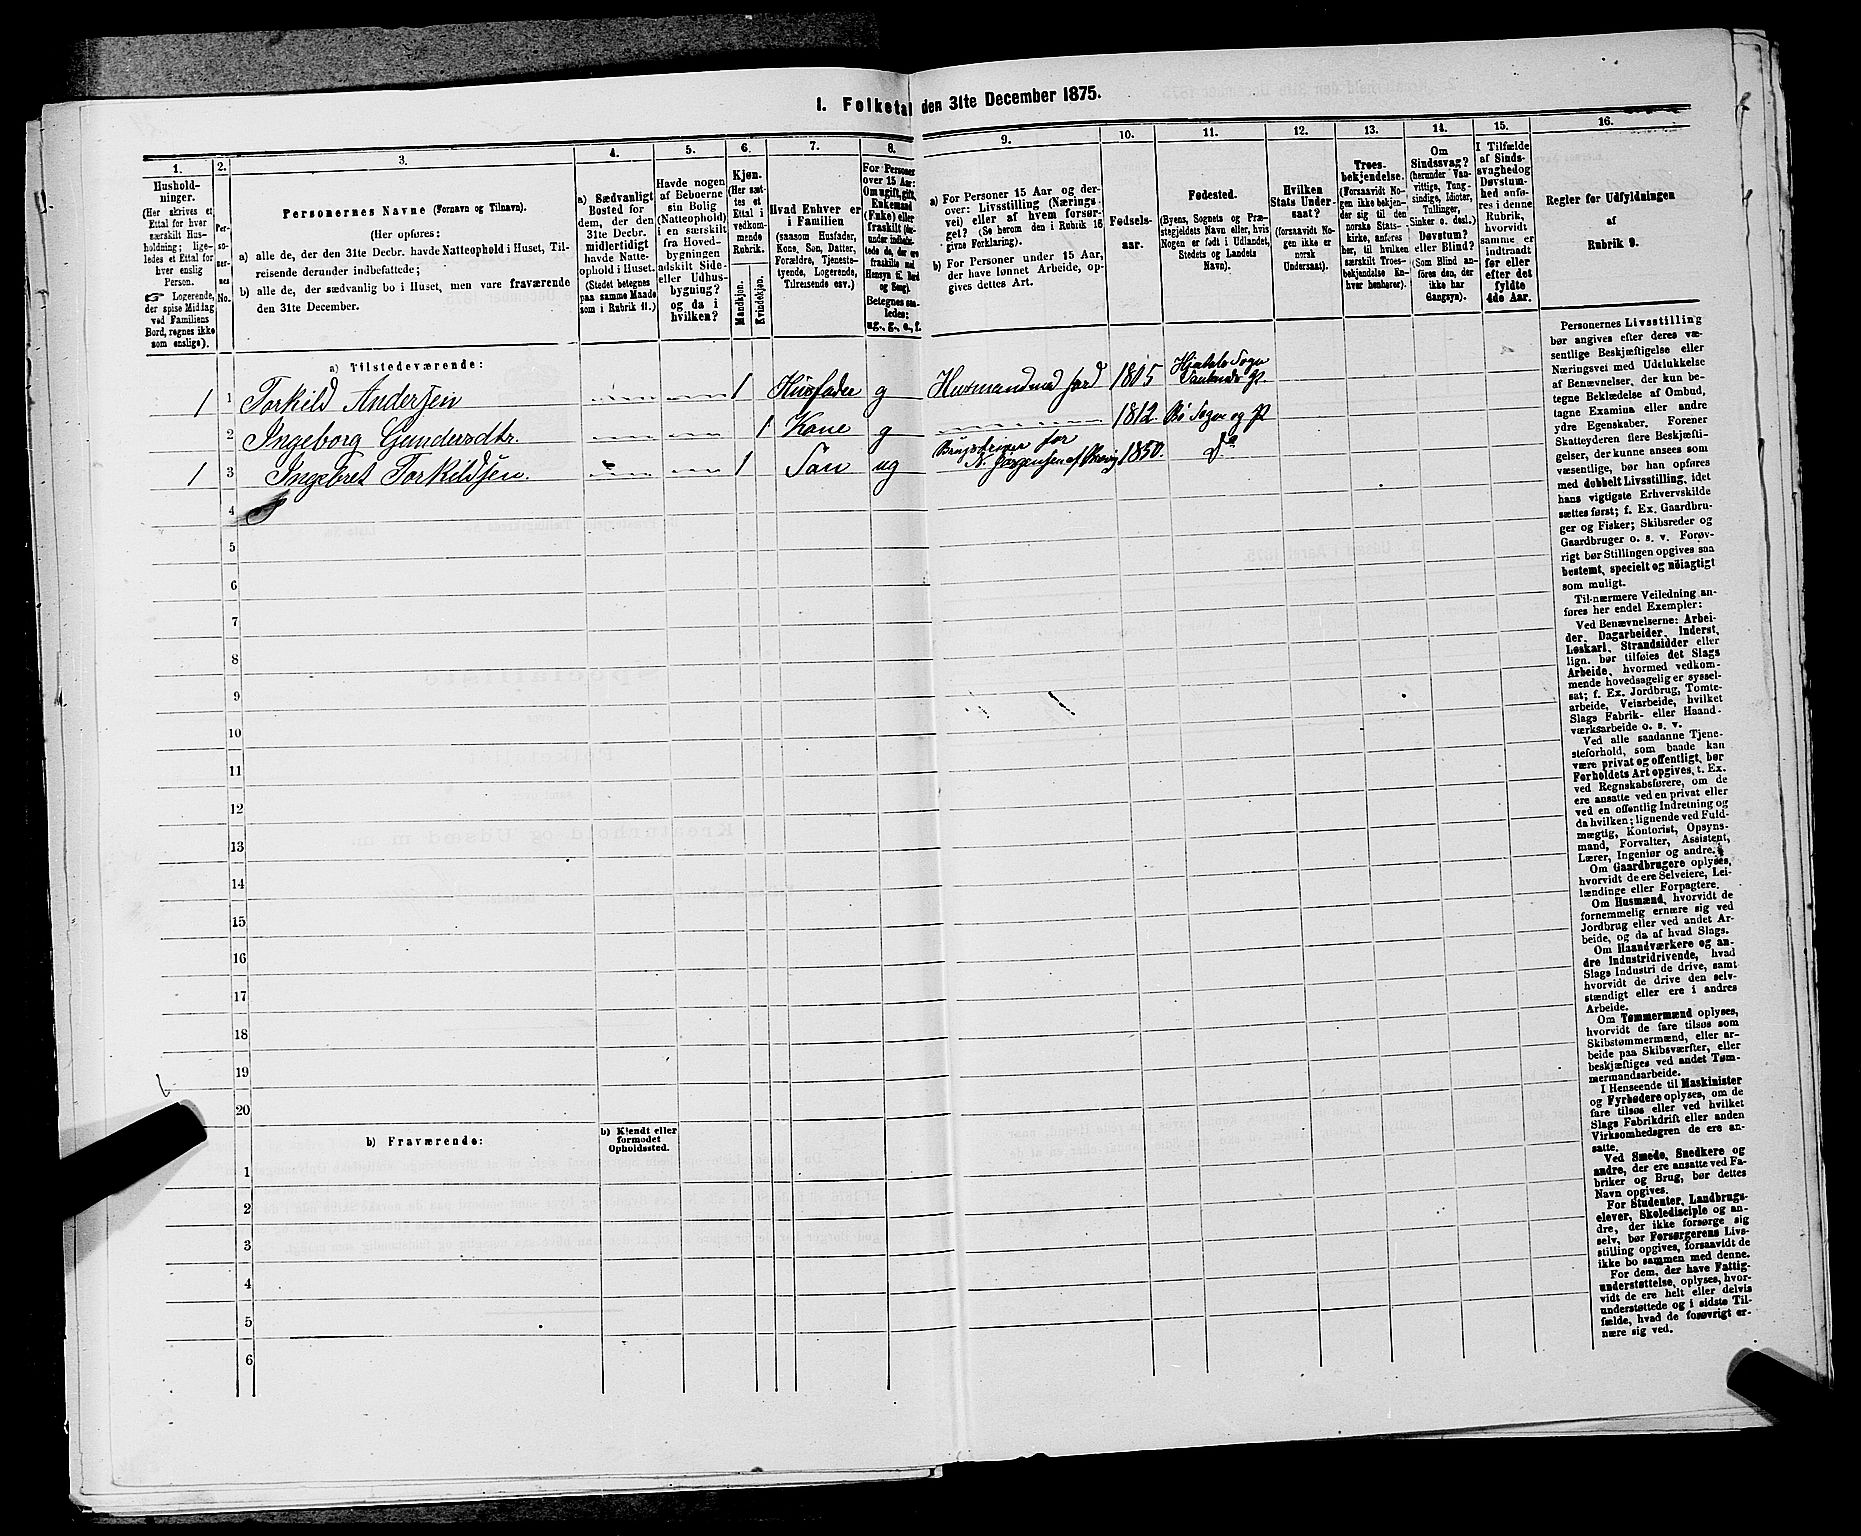 1. Folketal den 31te December 1875.
1.
2.
3.
4.
5.
6.
7.
8.
9.
10.
11.
12.
13.
14.
15.
16.
Hushold-
ninger.
(Her skrives et
Ettal for hver
særskilt Hus-
holdning; lige-
ledes et Ettal for
hver enslig
Person.
☞ Logerende,
der spise Middag
ved Familiens
Bord, regnes ikke
som enslige).
Per-
so-
ner-
nes
No.
Personernes Navne (Fornavn og Tilnavn).
(Her opføres:
a) alle de, der den 31te Decbr. havde Natteophold i Huset, Til-
reisende derunder indbefattede;
b) alle de, der sædvanlig bo i Huset, men vare fraværende
den 31te December.
a) Sædvanligt
Bosted for
dem, der den
31te Decbr.
midlertidigt
havde Natte-
ophold i Huset.
(Stedet betegnes
paa samme Maade
som i Rubrik 11.)
Havde nogen
af Beboerne
sin Bolig
(Natteophold)
i en særskilt
fra Hoved-
bygningen
adskilt Side-
eller Udhus-
bygning?
og da i
hvilken?
Kjøn.
(Her sæt-
tes et
Ettal i
vedkom-
mende
Rubrik.
Mandkjøn.
Kvindekjøn.
Hvad Enhver er
i Familien
(saasom Husfader,
Kone, Søn, Datter,
Forældre, Tjeneste-
tyende, Logerende,
Tilreisende osv.)
For Personer
over 15 Aar:
Om ugift, gift,
Enkemand
(Enke) eller
fraskilt
Betegnes saa-
ledes:
ug., g., e., f.
a) For Personer 15 Aar og der-
over: Livsstilling (Nærings-
vei) eller af hvem forsør-
get? (Se herom den i Rubrik 16
givne Forklaring).
b) For Personer under 15 Aar,
der have lønnet Arbeide, op-
gives dettes Art.
Fødsels-
aar.
Fødested.
(Byens, Sognets og Præ-
stegjeldets Navn eller, hvis
Nogen er født i Udlandet,
Stedets og Landets
Navn).
Hvilken
Stats Under-
saat?
(forsaavidt No-
gen ikke er
norsk
Undersaat).
Troes-
bekjendelse.
(Forsaavidt No-
gen ikke bekjen-
der sig til den
norske Stats-
kirke, anføres
her, til hvilken
særskilt Troes-
bekjendelse En-
hver henhører).
Om
Sindssvag?
(herunder Van-
vittige, Tung-
sindige, Idioter,
Tullinger,
Sinker o. desl.).
Døvstum?
eller Blind?
(Som Blind an-
føres den, der
ikke har
Gangsyn).
I Tilfælde
af Sinds-
svaghed og
Døvstum-
hed anfø-
res i denne
Rubrik,
hvorvidt
samme er
indtraadt
før eller
efter det
fyldte
4de Aar.
Regler for Udfyldningen
af
Rubrik 9.
a) Tilstedeværende:
1 1 Torkild Andersen 1 Husfader g Husmand med Jord 1805 Hjartdal Sogn
2 Ingeborg Gundersdtr. 1 Kone g 1812 Bø Sogn og P
1 3 Ingebret Torkildsen. 1 Søn ug 1850. Do
4
5
6
7
8
9
10
11
12
13
14
15
16
17
18
19
20
b) Fraværende:
b) Kjendt eller
formodet
Opholdssted.
1
2
3
4
5
6
Personernes Livsstilling
bør angives efter deres væ-
sentlige Beskjæftigelse eller
Næringsvei med Udelukkelse
af Benævnelser, der kun be-
tegne Beklædelse af Ombud,
tagne Examina eller andre
ydre Egenskaber. Forener
Skatteyderen flere Beskjæfti-
gelser, der kunne ansees som
væsentlige, bør han opføres
med dobbelt Livsstilling, idet
hans vigtigste Erhvervskilde
sættes først; f. Ex. Gaardbru-
ger og Fisker; Skibsreder og
Gaardbruger o. s. v. Forøv-
rigt bør Stillingen opgives saa
bestemt, specielt og nøiagtigt
som muligt.
Til nærmere Veiledning an-
føres her endel Exempler:
Ved Benævnelserne: Arbei-
der, Dagarbeider, Inderst,
Løskarl, Strandsidder eller
lign. bør tilføies det Slags
Arbeide, hvormed vedkom-
mende hovedsagelig er syssel-
sat; f. Ex. Jordbrug, Tomte-
arbeide, Veiarbeide, hvilket
Slags Fabrik- eller Haand-
værksarbeide o. s. v.
Ved alle saadanne Tjene-
steforhold, som baade kan
være privat og offentligt, bør
Forholdets Art opgives, f. Ex.
ved Regnskabsførere, om de
ere ansatte ved en privat eller
ved en offentlig Indretning og
da hvilken; lignende ved Fuld-
mægtig, Kontorist, Opsyns-
mand, Forvalter, Assistent,
Lærer, Ingeniør og andre.
Om Gaardbrugere oplyses,
hvorvidt de ere Selveiere, Lei-
lændinge eller Forpagtere.
Om Husmænd, hvorvidt de
fornemmelig ernære sig ved
Jordbrug eller ved andet Ar-
beide, og da af hvad Slags.
Om Haandværkere og an-
dre Industridrivende, hvad
Slags Industri de drive, samt
hvorvidt de drive den selv-
stændigt eller ere i andres
Arbeide.
Om Tømmermænd oplyses,
hvorvidt de fare tilsøs som
Skibstømmermænd, eller ar-
beide paa Skibsværfter, eller
beskjæftiges ved andet Tøm-
mermandsarbeide.
I Henseende til Maskinister
og Fyrbødere oplyses, om de
fare tilsøs eller ved hvilket
Slags Fabrikdrift eller anden
Virksomhedsgren de ere an-
satte.
Ved Smede, Snedkere og
andre, der ere ansatte ved Fa-
briker og Brug, bør dettes
Navn opgives.
For Studenter, Landbrugs-
elever, Skoledisciple og an-
dre, der ikke forsørge sig
selv, bør Forsørgerens Livs-
stilling opgives, forsaavidt de
ikke bo sammen med denne.
For dem, der have Fattig-
understøttelse, oplyses, hvor-
vidt de ere helt eller delvis
understøttede og i sidste Til-
fælde, hvad de forøvrigt er-
nære sig ved.